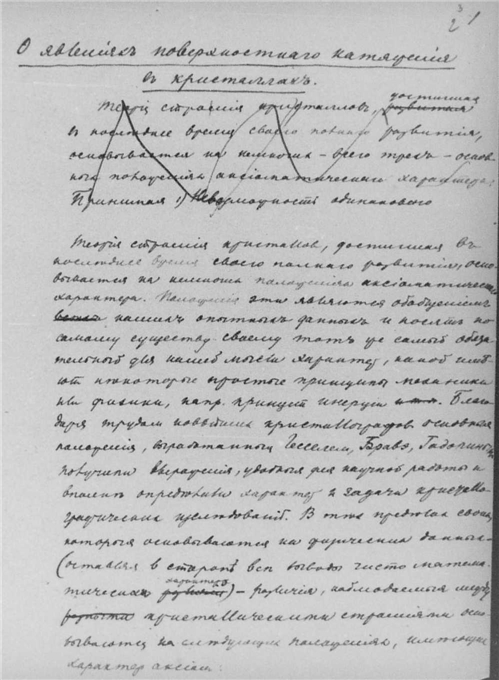 О явленіяхъ поверхностнаго натяженія
въ кристаллахъ.
Теорія строенія кристалловъ, достигшая
въ последнее время своего полнаго развитія,
основывается на немногихъ – всего трехъ – основ
ныхъ положеніяхъ аксіоматическаго характера.
Принимая 1) Невозможность одинаковаго
Теорія строенія кристалловъ, достигшая въ
последнее время своего полнаго развитія, осно
вывается на немногихъ положеніяхъ аксіоматическаго
характера. Положенія эти являются обобщеніемъ
нашихъ опытныхъ данныхъ и носятъ по
самому существу своему тотъ же самый обяза
тельный для нашей мысли характеръ, какой имѣ
ютъ нѣкоторые простые принципы механики
или физики, напр. принципъ инерціи. Благо
даря трудамъ новѣйшихъ кристаллографовъ основныя
положенія, выработанныя Гесселемъ, Бравэ, Гадолинымъ
получили выраженія, удобныя для научной работы и
вполнѣ опредѣлили характеръ и задачи кристалло
графическихъ изслѣдованій. Въ тѣхъ предѣлахъ своихъ
которыя основываются на физическихъ данныхъ
(оставляя въ сторонѣ всѣ выводы чисто матема
тическаго характера) – различія, наблюдаемыя между
кристаллическими строеніями осно
вываются на слѣдующихъ положеніяхъ, имѣющихъ
характеръ аксіомъ: